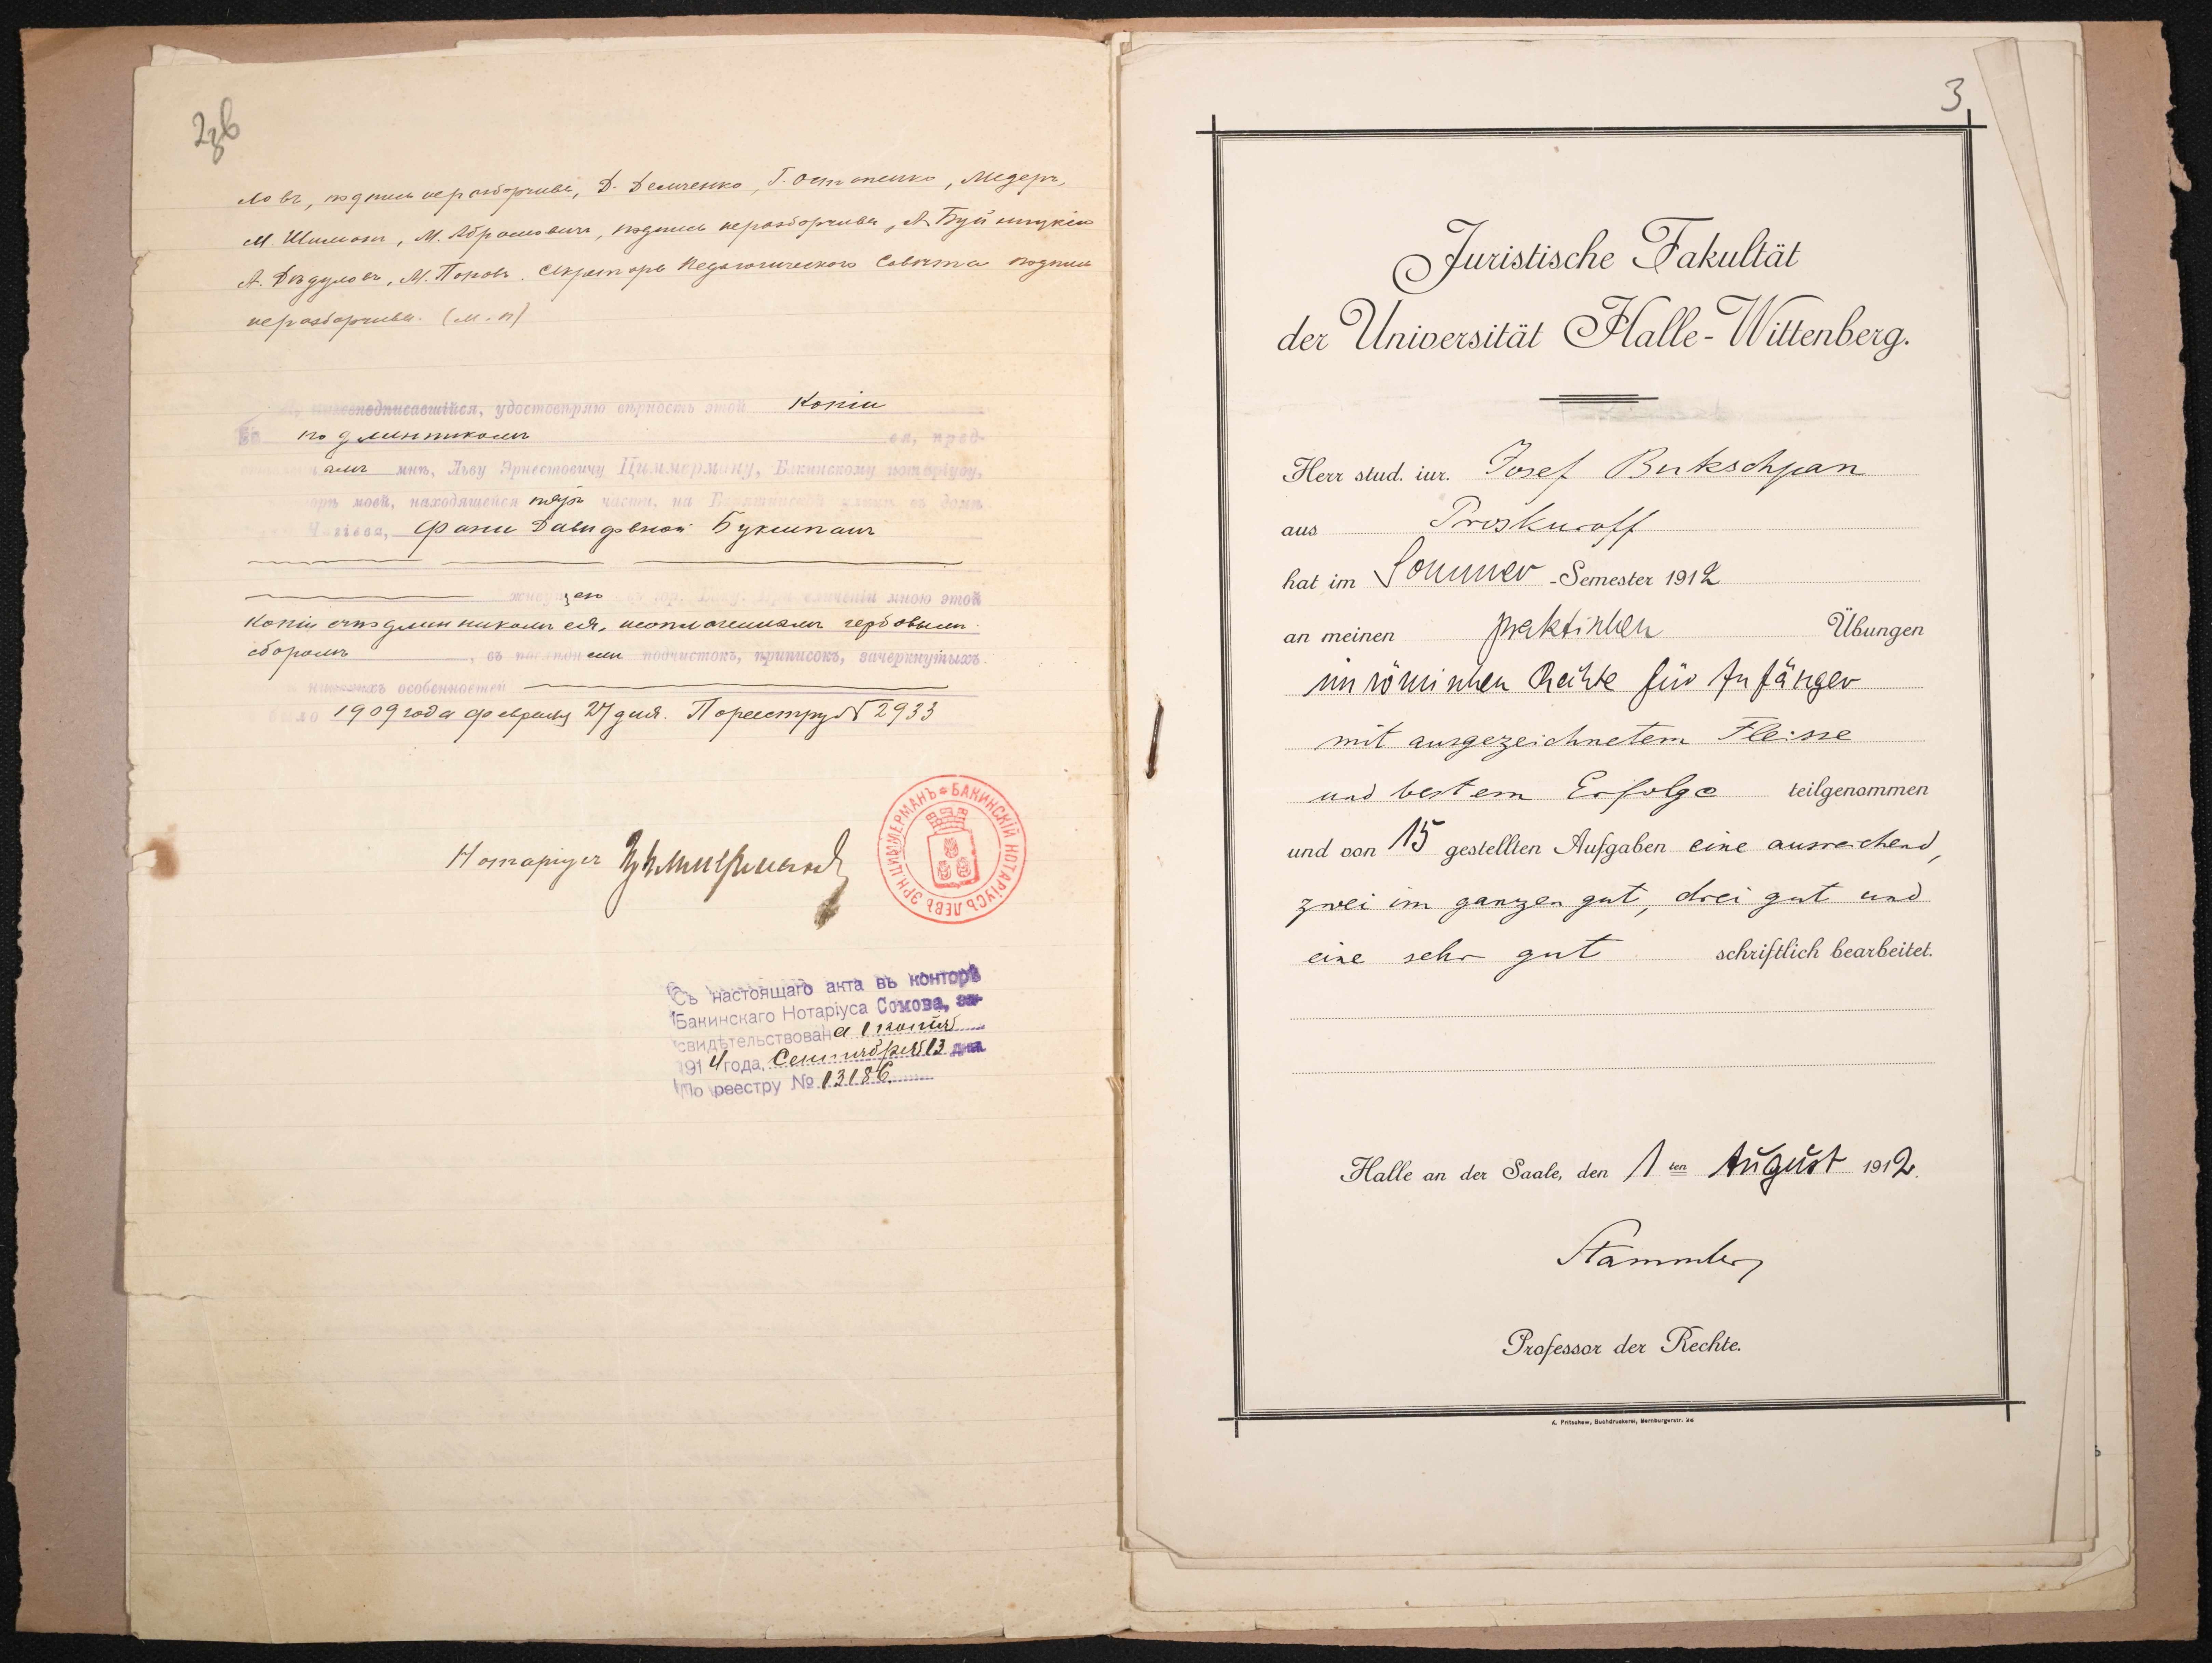 2зв
ловъ, подпись неразборчива, Д. Демченко, Г. Остапенко, Медеръ,
М. Шиманъ, М. Абрамовичъ, подпись неразборчива, А. Буйницкій
А. Дѣдуловъ, М. Поповъ. Секретарь Педагогическаго Совѣта подпись
неразборчива. (м. п)
подписавшійся, удостовѣряю вѣрность этой копіи
съ подлинникомъ ея, пред-
мнѣ, Льву Эрнестовичу Циммерману, Бакинскому нотаріусу,
моей, находящейся части, на улицѣ въ домѣ
Фани Давидовной Букшпанъ
мною этой
копіи съ подлинникомъ ея, неоплоченнымъ гербовымъ
сборомъ, въ подчистокъ, приписокъ, зачеркнутыхъ
особенностей
1909 года февраля 27 дня. По реестру № 2933
Нотаріусъ Циммерманъ
БАКИНСКІЙ НОТАРІУСЪ ЛЕВЪ ЭРН. ЦИММЕРМАНЪ
Съ настоящаго акта въ конторѣ
Бакинскаго Нотаріуса Сомова, за-
свидѣтельствована 1 копія
1914 года, Сентября 13 дня
По реестру № 13186.
3
Juristische Fakultät
der Universität Halle-Wittenberg.
Herr stud. iur. Josef Bukschpan
aus Proskuroff
hat im Sommer-Semester 1912
an meinen praktischen Übungen
im römischen Rechte für Anfänger
mit ausgezeichnetem Fleisse
und bestem Erfolge teilgenommen
und von 15 gestellten Aufgaben eine ausreichend,
zwei im ganzen gut, drei gut und
eine sehr gut schriftlich bearbeitet.
Halle an der Saale, den 1ten August 1912.
Stammler
Professor der Rechte.
Pritschow, Buchdruckerei, Bernburgerstr.